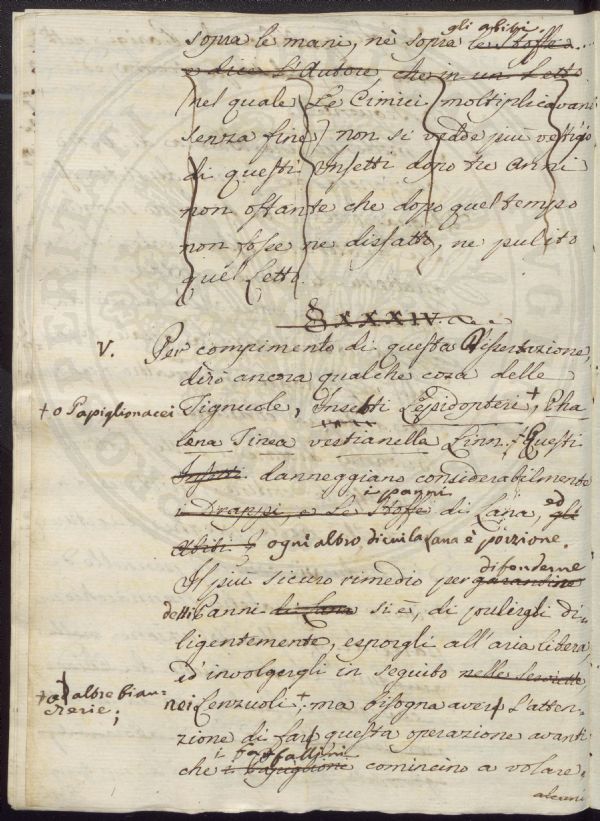 gli abiti.
sopra le mani, nè sopra le Stoffe
e dice L'Autore che in un Letto
(nel quale Le Cimici moltiplicavani
senza fine) non si vedde più vestigio
di questi Insetti dopo tre anni
non ostante che dopo quel tempo
non fosse ne disfatto, ne pulito
quel Letto.
§ XXXIV.
V. Per compimento di questa Dissertazione,
dirò ancora qualche coza delle
+ o Papiglionacei
Tignuole, Insetti Lepidopteri +, Pha
lena Tinea vestianella Linn. Questi
Insetti danneggiano considerabilmente
i panni
i Drappi, e Le Stoffe di Lana, ed gli
Abiti ogni altro di cui la Lana è porzione.
difenderne
Il più sicuro rimedio per garantire
detti Panni di Lana si è, di pulirgli di=
ligentemente, esporgli all'aria libera,
ed involgergli in seguito nelle
+ o altre bian=
cherie;
nei Lenzuoli +; ma bisogna aver L'atten=
zione di far questa operazione avanti
i farfallini
che i Papiglioni comincino a volare.
alcuni